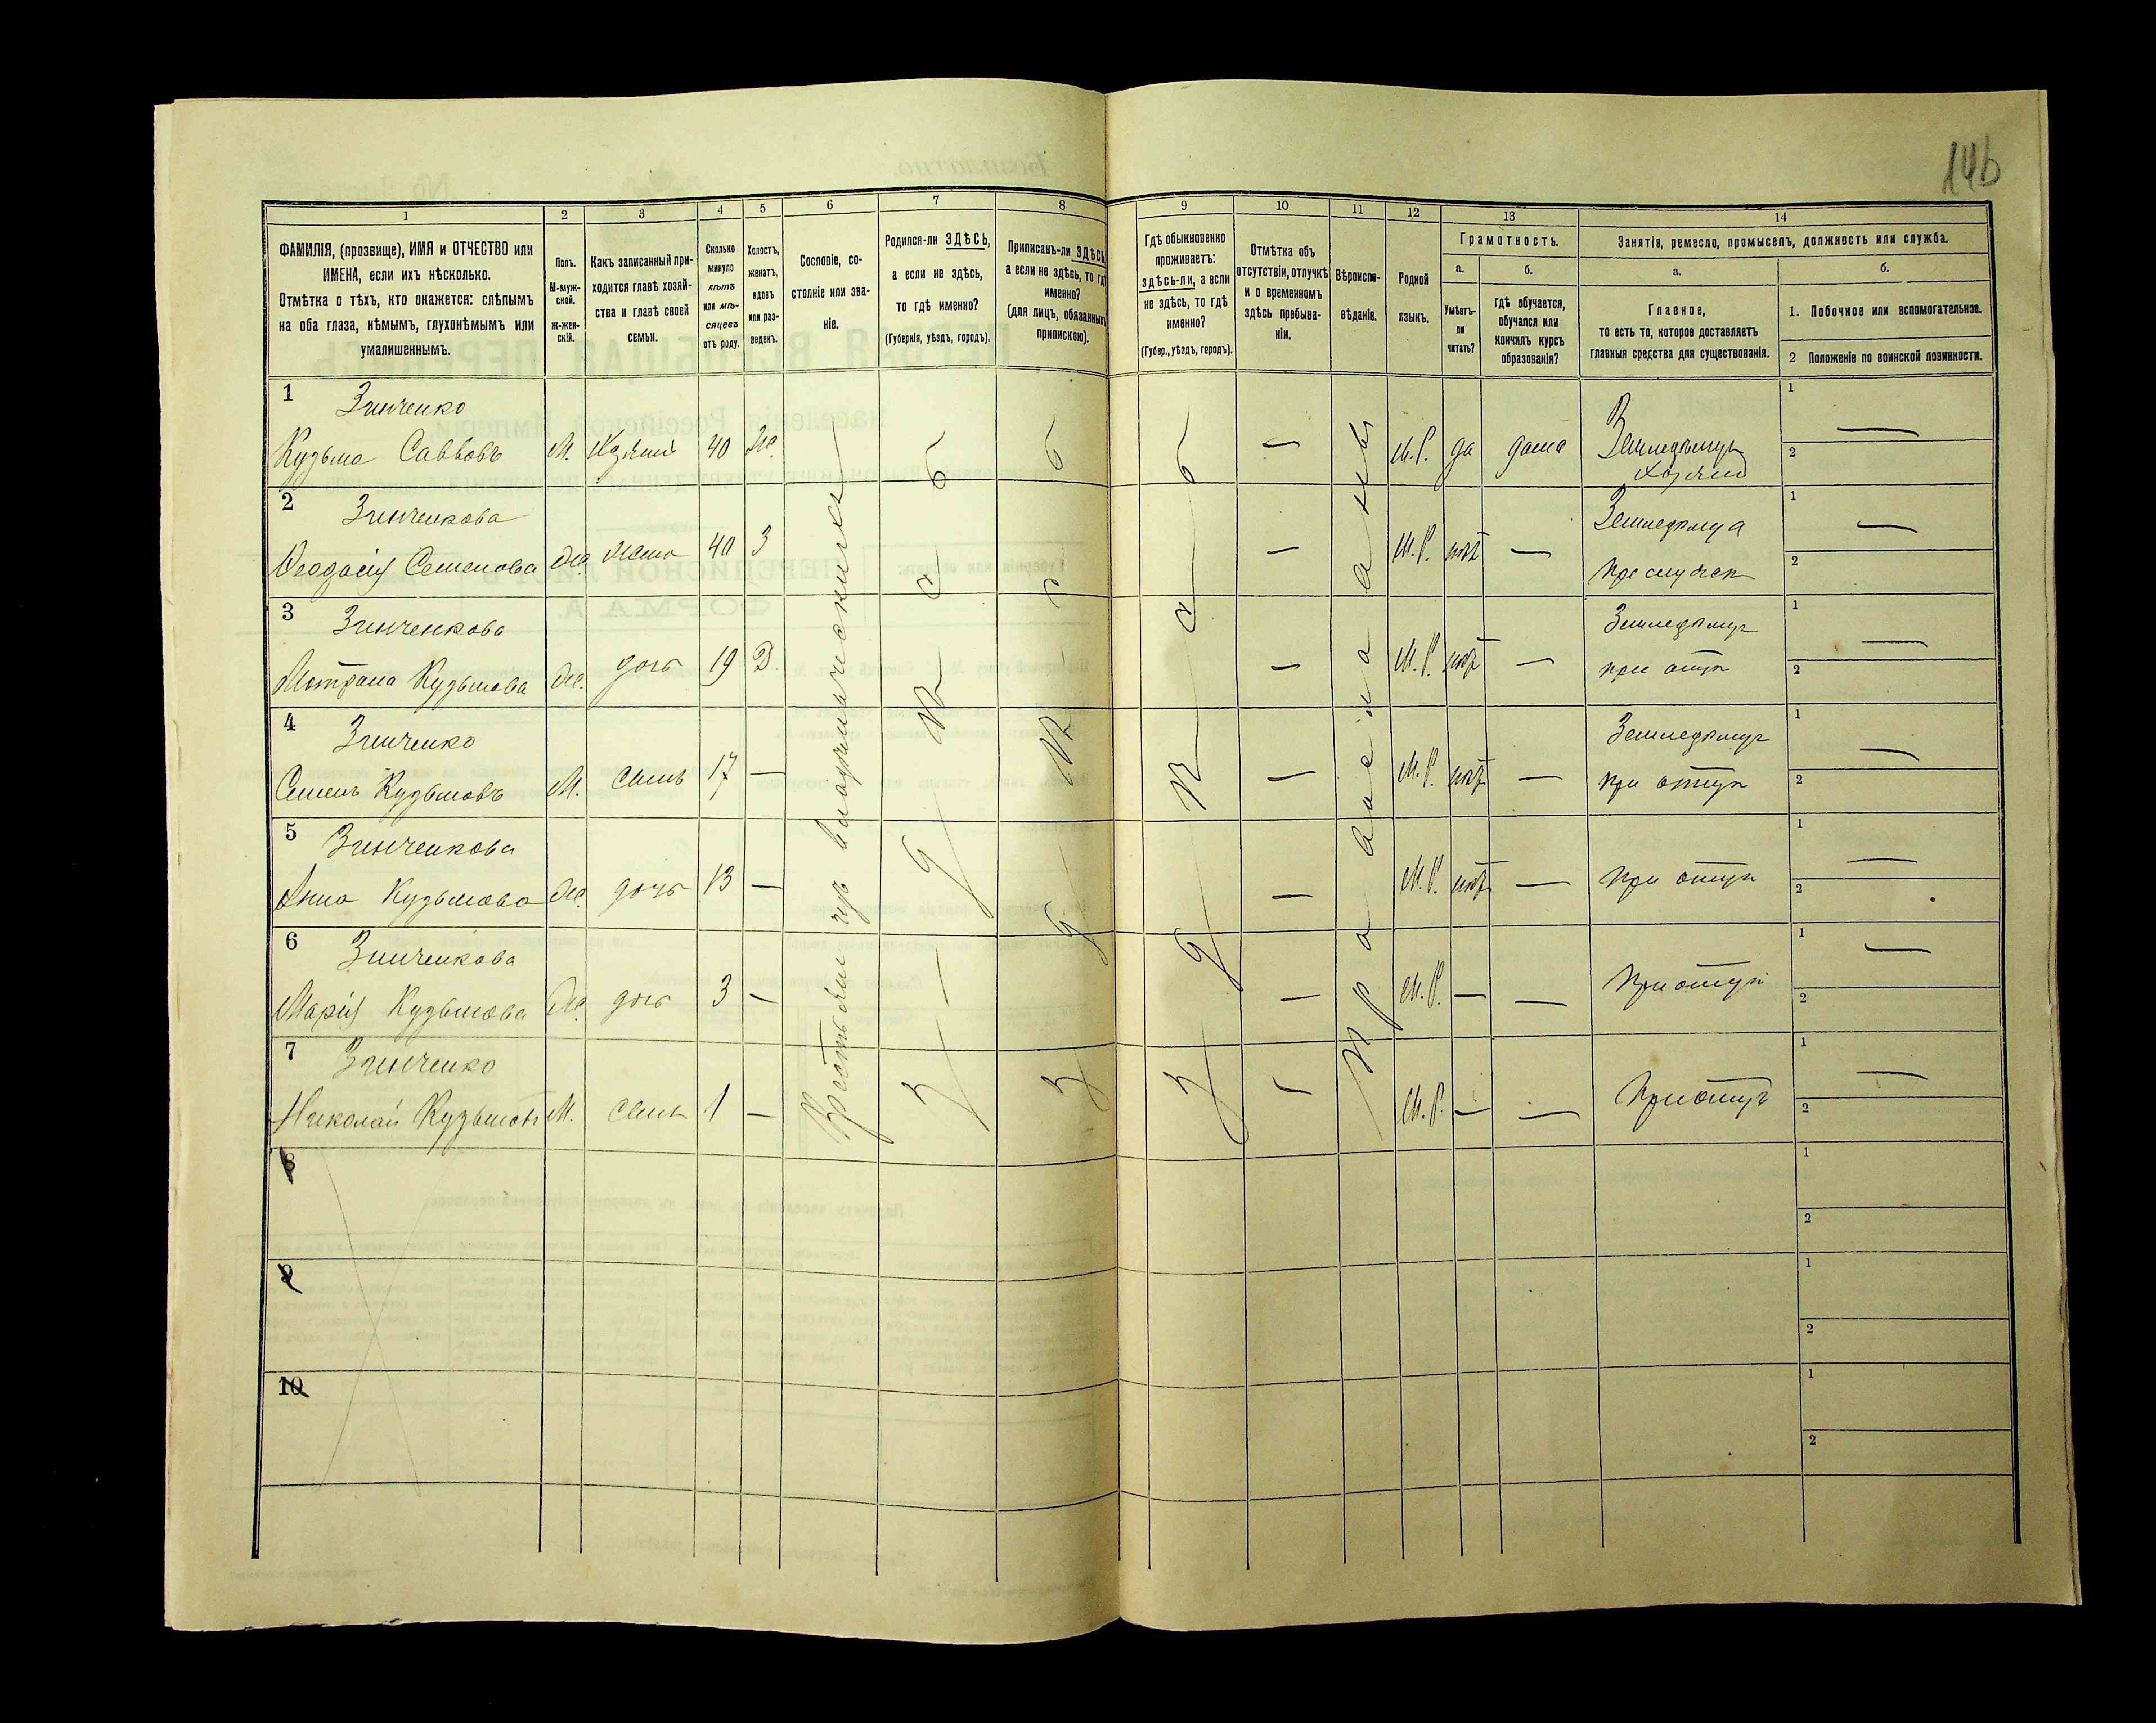 146
1 2 3 4 5 6 7 8 9 10 11 12 13 14
ФАМИЛІЯ, (прозвище), ИМЯ и ОТЧЕСТВО или
ИМЕНА, если ихъ нѣсколько.
Отмѣтка о тѣхъ, кто окажется: слѣпымъ
на оба глаза, нѣмымъ, глухонѣмымъ или
умалишеннымъ.
Полъ.
М-муж-
ской.
ж-жен-
скій.
Какъ записанный при-
ходится главѣ хозяй-
ства и главѣ своей
семьи.
Сколько
минуло
лѣтъ
или мѣ-
сяцевъ
отъ роду.
Холостъ,
женатъ,
вдовъ
или раз-
веденъ.
Сословіе, со-
стояніе или зва-
ніе.
Родился-ли ЗДѢСЬ,
а если не здѣсь,
то гдѣ именно?
(Губернія, уѣздъ, городъ).
Приписанъ-ли ЗДѢСЬ,
а если не здѣсь, то гдѣ
именно?
(для лицъ, обязанныхъ
припискою).
Гдѣ обыкновенно
проживаетъ:
здѣсь-ли, а если
не здѣсь, то гдѣ
именно?
(Губер., уѣздъ, городъ).
Отмѣтка объ
отсутствіи, отлучкѣ
и о временномъ
здѣсь пребыва-
ніи.
Вѣроиспо-
вѣданіе.
Родной
языкъ.
Грамотность.
а.
Умѣетъ-
ли
читать?
б.
гдѣ обучается,
обучался или
кончилъ курсъ
образованія?
Занятія, ремесло, промыселъ, должность или служба.
а.
Главное,
то есть то, которое доставляетъ
главныя средства для существованія.
б.
1. Побочное или вспомогательное.
2 Положеніе по воинской повинности.
1 Зинченко
Кузьма Саввовъ М. Хозяинъ 40 Ж. — М.Р. да дома Земледѣлецъ
хозяинъ
1 —
2
2 Зинченкова
Ѳеодосія Семенова Ж. жена 40 З — М.Р. нѣтъ —
1 —
2
3 Зинченкова
Мотрана Кузьмова Ж. дочь 19 Д. — М.Р. нѣтъ — при отцѣ
1 —
2
4 Зинченко
Семенъ Кузьмовъ М. сынъ 17 — — М.Р. нѣтъ — при отцѣ
1 —
2
5 Зинченкова
Анна Кузьмова Ж. дочь 13 — — М.Р. нѣтъ — при отцѣ
1 —
2
6 Зинченкова
Марія Кузьмова Ж. дочь 3 — — М.Р. — — при отцѣ
1 —
2
7 Зинченко
Николай Кузьмовъ М. сынъ 1 — — М.Р. — — при отцѣ
1 —
2
Крестьяне
здѣсь
здѣсь
здѣсь
Православный
8
1
2
9
1
2
10
1
2